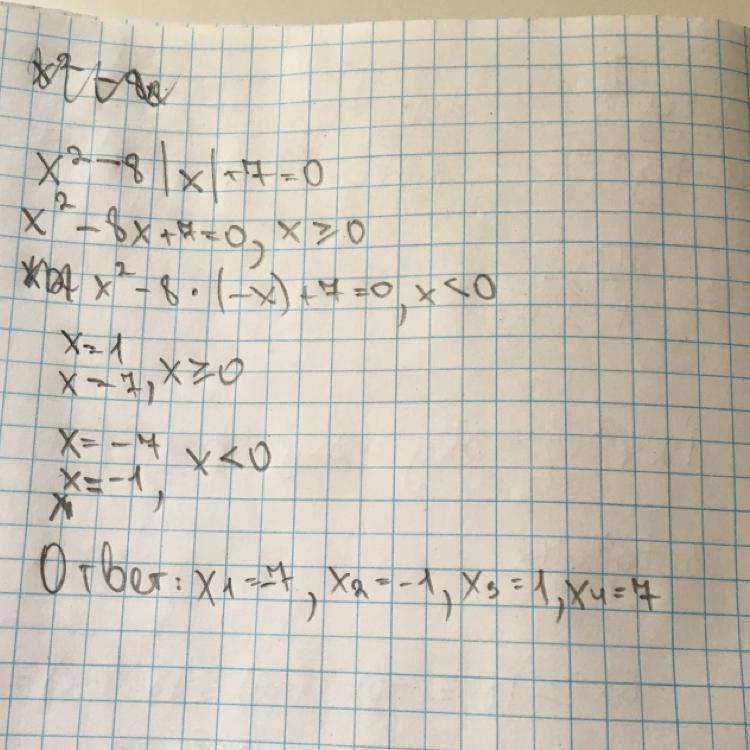 x² - 8|x| + 7 = 0
x² - 8x + 7 = 0, x ≥ 0
x² - 8 · (-x) + 7 = 0, x < 0
x = 1
x = 7, x ≥ 0
x = -7
x = -1, x < 0
Ответ: x₁ = -7, x₂ = -1, x₃ = 1, x₄ = 7